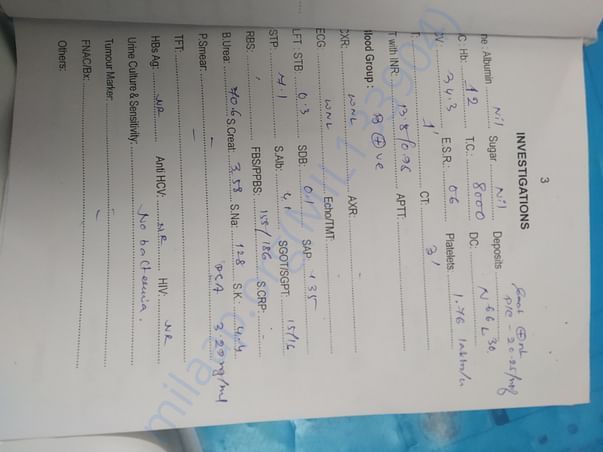 3
INVESTIGATIONS
ne : Albumin Nil Sugar Nil Deposits
P/C - 20-25/hpf
C : Hb: 12 T.C.: 8000 DC: N 66 L 30
CV: 34.3 E.S.R.: 06 Platelets: 1.76 lakhs/
T: 1' CT: 3'
T with INR: 13.8/0.96 APTT:
lood Group : B ⊕ve
CXR: WNL AXR:
ECG: WNL Echo/TMT:
LFT : STB: 0.3 SDB: 0.1 SAP: 135
STP: 7.1 S.Alb: 4.1 SGOT/SGPT: 15/16
RBS: FBS/PPBS: 158/186 S.CRP: -
B.Urea: 70.6 S.Creat: 3.58 S.Na: 128 S.K: 4.4
P.Smear: - PSA 3.29 ng/ml
TFT: -
HBs Ag: NR Anti HCV: NR HIV: NR
Urine Culture & Sensitivity: No bacteruria.
Tumour Marker: -
FNAC/Bx: -
Others:
milaap.org(MIL133904)